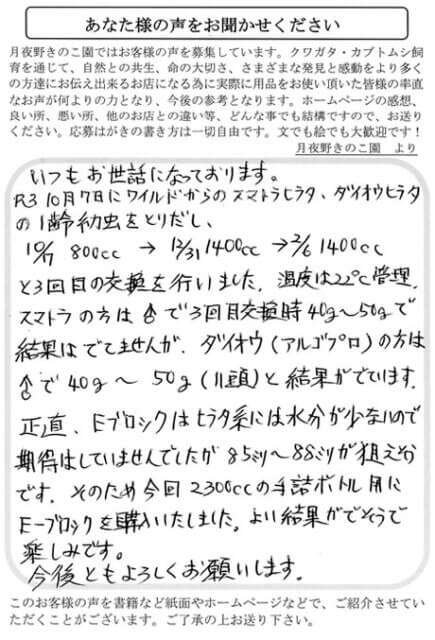 あなた様の声をお聞かせください
月夜野きのこ園ではお客様の声を募集しています。クワガタ・カブトムシ飼
育を通じて、自然との共生、命の大切さ、さまざまな発見と感動をより多く
の方達にお伝え出来るお店になる為に実際に用品をお使い頂いた皆様の率直
なお声が何よりの力となり、今後の参考となります。ホームページの感想、
良い所、悪い所、他のお店との違い等、どんな事でも結構ですので、お送り
ください。応募はがきの書き方は一切自由です。文でも絵でも大歓迎です！
月夜野きのこ園 より
いつもお世話になっております。
R3 10月7日にワイルドからのスマトラヒラタ、ダイオウヒラタ
の1齢幼虫をとりだし、
10/7 800cc → 12/31 1400cc → 2/6 1400cc
と3回目の交換を行いました。温度は22℃管理。
スマトラの方は♂で3回目交換時40g〜50gで
結果はでてませんが、ダイオウ（アルゴプロ）の方は
♂で40g〜50g（11頭）と結果がでています。
正直、Eブロックはヒラタ系には水分が少ないので
期待はしていませんでしたが85ミリ〜88ミリが狙えそう
です。そのため今回2300ccの手詰ボトル用に
E-ブロックを購入いたしました。よい結果がでそうで
楽しみです。
今後ともよろしくお願いします。
このお客様の声を書籍など紙面やホームページなどで、ご紹介させてい
ただくことがございます。ご了承の上お送り下さい。